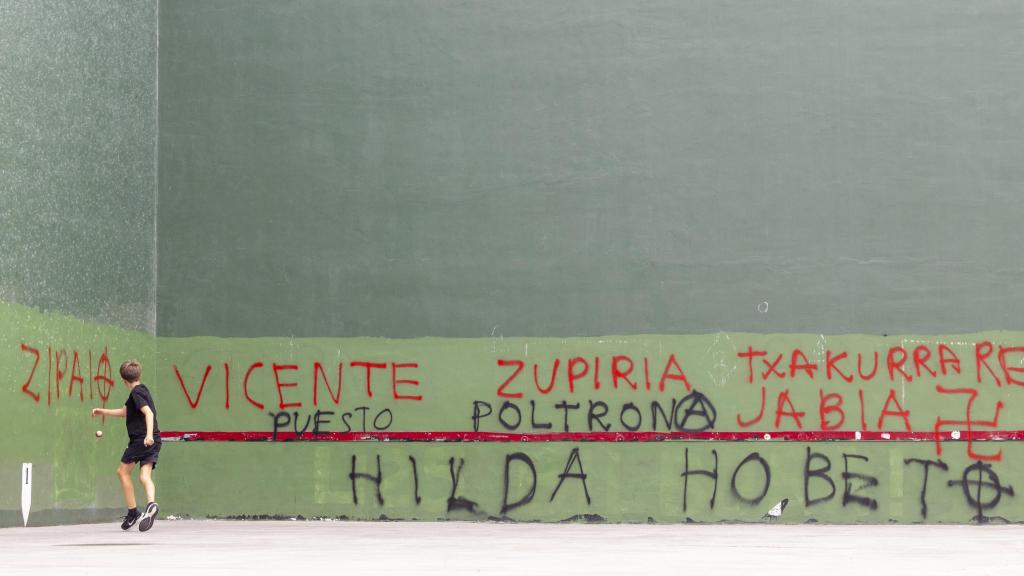 ZIPAIO VICENTE ZUPIRIA TXAKURRARE
PUESTO POLTRONA JABIA
HILDA HOBETO
1